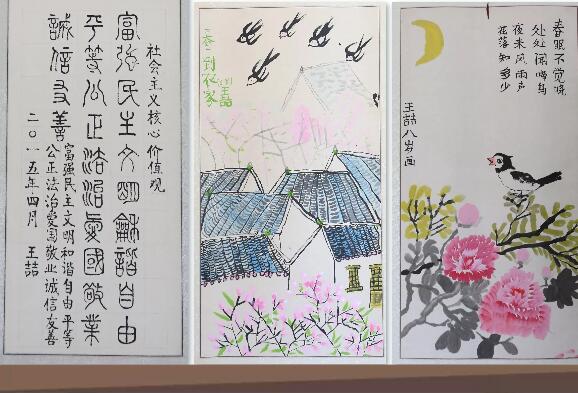 社会主义核心价值观
富強民主文朙龢諧自由
平等公正法治愛國敬業
誠信友善
富强民主文明和谐自由平等
公正法治爱国敬业诚信友善
二〇一五年四月 王喆
春到农家
王喆
春眠不觉晓
处处闻啼鸟
夜来风雨声
花落知多少
王喆八岁画